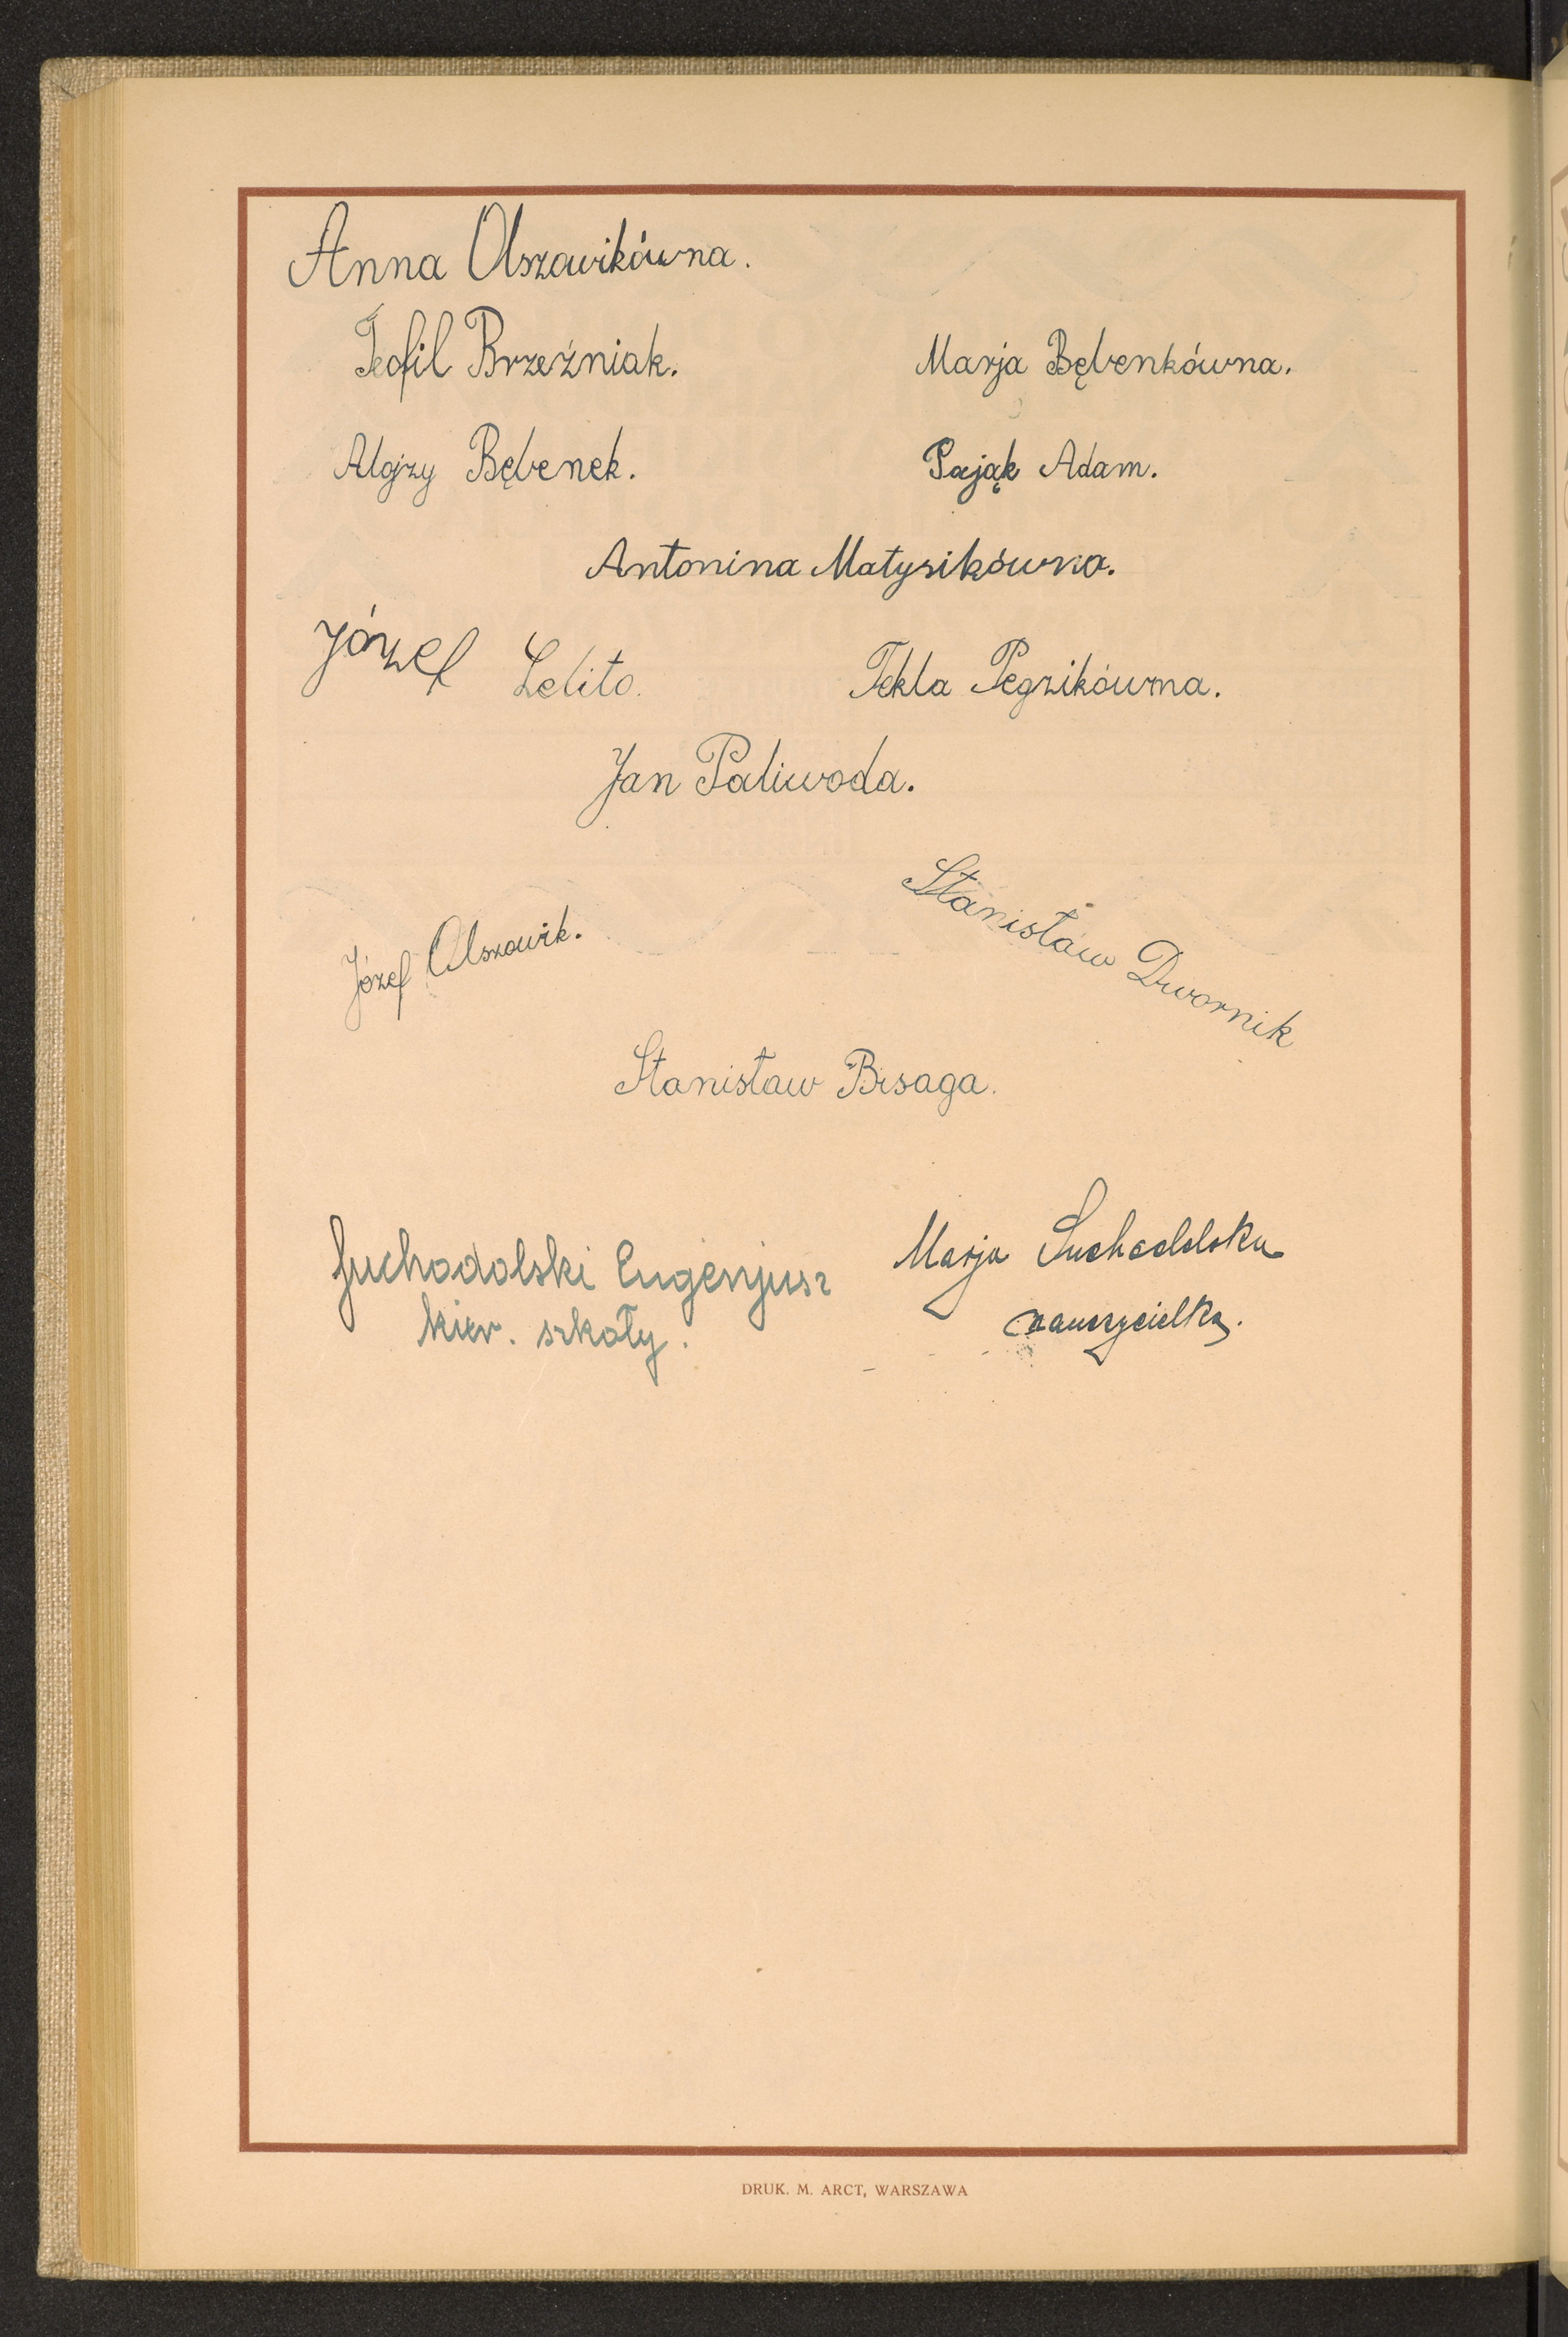 Anna Olszowikówna.
Teofil Brzeźniak. Marja Bębenkówna.
Alojzy Bębenek. Pająk Adam.
Antonina Matysikówna.
Józef Lelito. Tekla Pegzikówna.
Jan Paliwoda.
Józef Olszowik. Stanisław Dwornik
Stanisław Bisaga.
Suchodolski Eugenjusz Marja Suchodolska
kier. szkoły. nauczycielka.
DRUK. M. ARCT, WARSZAWA